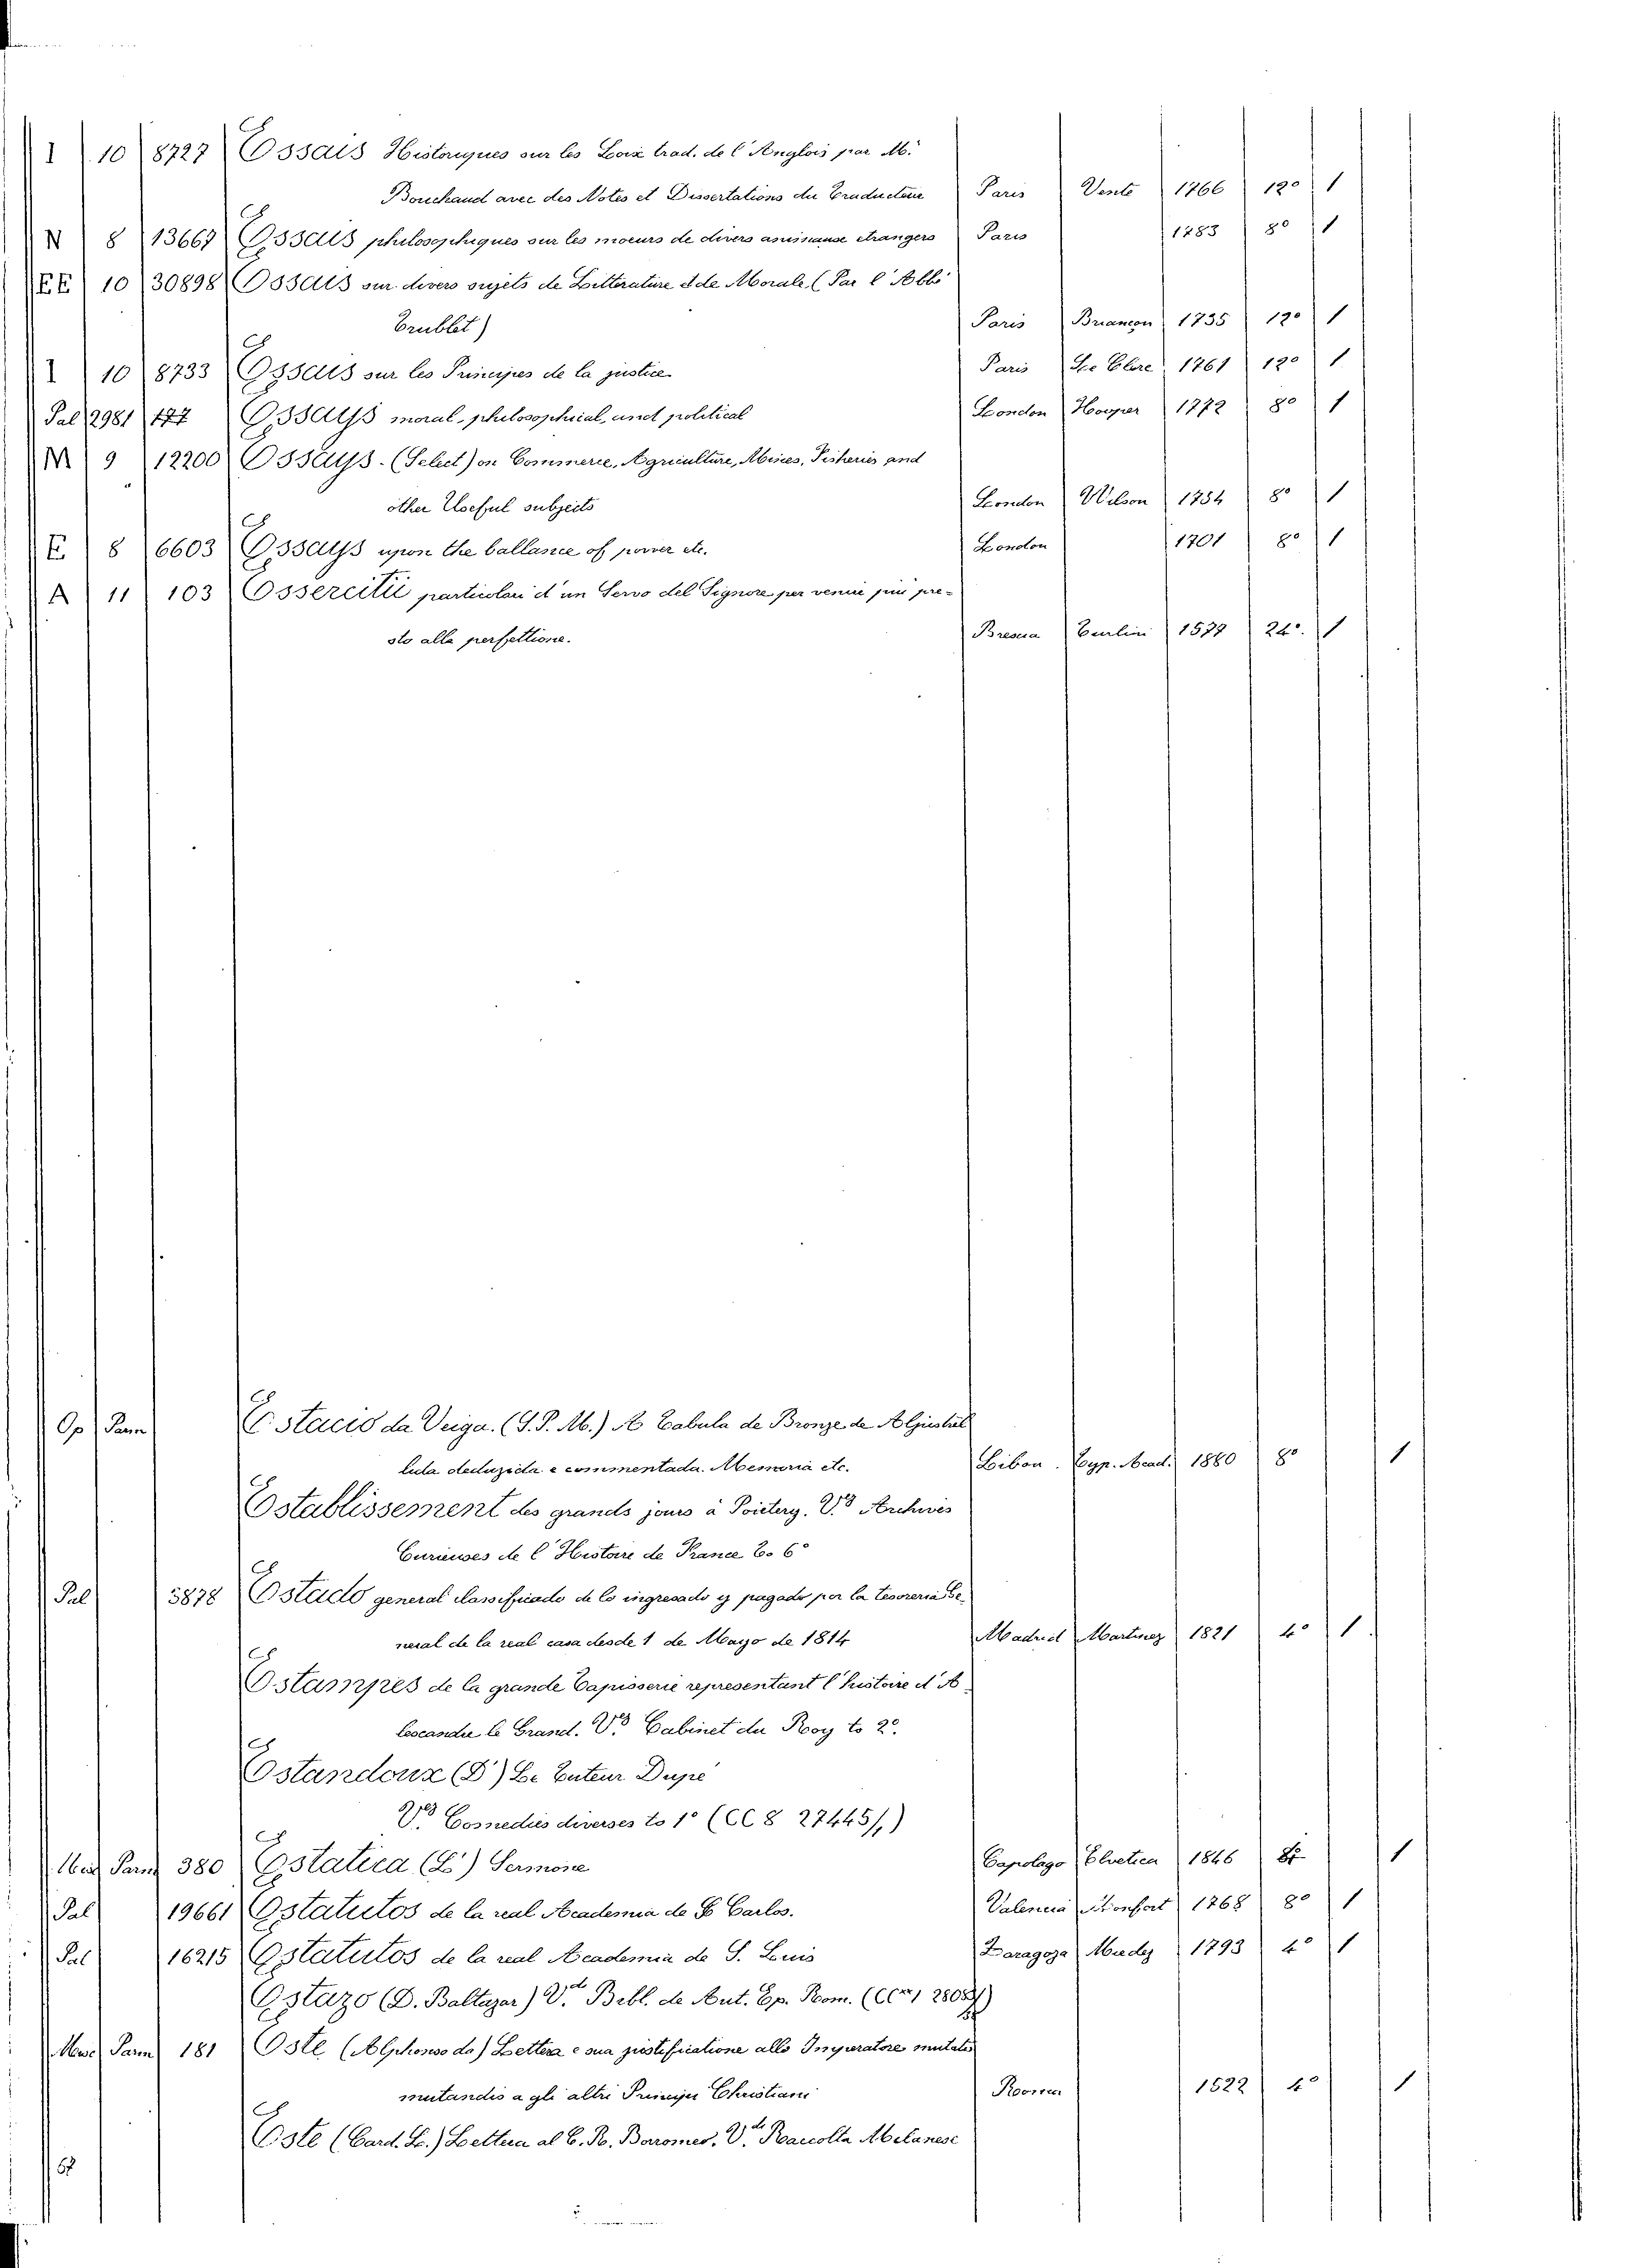 I 10 8727 Essais Historiques sur les Loix trad. de l'Anglois par M.
Bouchaud avec des Notes et Dissertations du Traducteur Paris Vente 1766 12° 1
N 8 13667 Essais philosophiques sur les moeurs de divers animaux etrangers Paris 1783 8° 1
EE 10 30898 Essais sur divers sujets de Litterature et de Morale (Par l'Abbé
Trublet) Paris Briancon 1735 12° 1
I 10 8733 Essais sur les Principes de la justice Paris Le Clere 1761 12° 1
Pal 2981 177 Essays moral, philosophical, and political London Hooper 1772 8° 1
M 9 12200 Essays. (Select) on Commerce, Agriculture, Mines, Fisheries and
other Useful subjects London Wilson 1754 8° 1
E 8 6603 Essays upon the ballance of power etc. London 1701 8° 1
A 11 103 Essercitii particolari d'un Servo del Signore per venire piu pre-
sto alla perfettione. Brescia Turlini 1577 24°. 1
Op Parm Estacio da Veiga. (S. P. M.) A Tabula de Bronze de Aljustrel
lida deduzida e commentada. Memoria etc. Lisbon. Typ. Acad. 1880 8° 1
Establissement des grands jours à Poicters. V° Archives
Curieuses de l'Histoire de France T. 6°
Pal 3878 Estado general classificado de lo ingresado y pagado por la tesoreria Ge-
neral de la real casa desde 1 de Mayo de 1814 Madrid Martinez 1821 4° 1.
Estampes de la grande Tapisserie representant l'histoire d'A-
lexandre le Grand. V° Cabinet du Roy to 2°.
Estandoux (D') Le Tuteur Dupé
V° Comedies diverses to 1° (CC 8 27445/1)
Misc Parm 380 Estatica (L') Sermone Capolago Elvetica 1846 8° 1
Pal 19661 Estatutos de la real Academia de S. Carlos. Valencia Monfort 1768 8° 1
Pal 16215 Estatutos de la real Academia de S. Luis Zaragoza Miedes 1793 4° 1
Estazo (D. Baltazar) V. Bibl. de Aut. Ep. Rom.
Misc Parm 181 Este (Alphonso da) Lettera e sua justificatione allo Imperatore mutatis
mutandis a gli altri Principi Christiani Roma 1522 4° 1
Este (Card. L.) Lettera al C. B. Borromeo. V. Raccolta Milanese